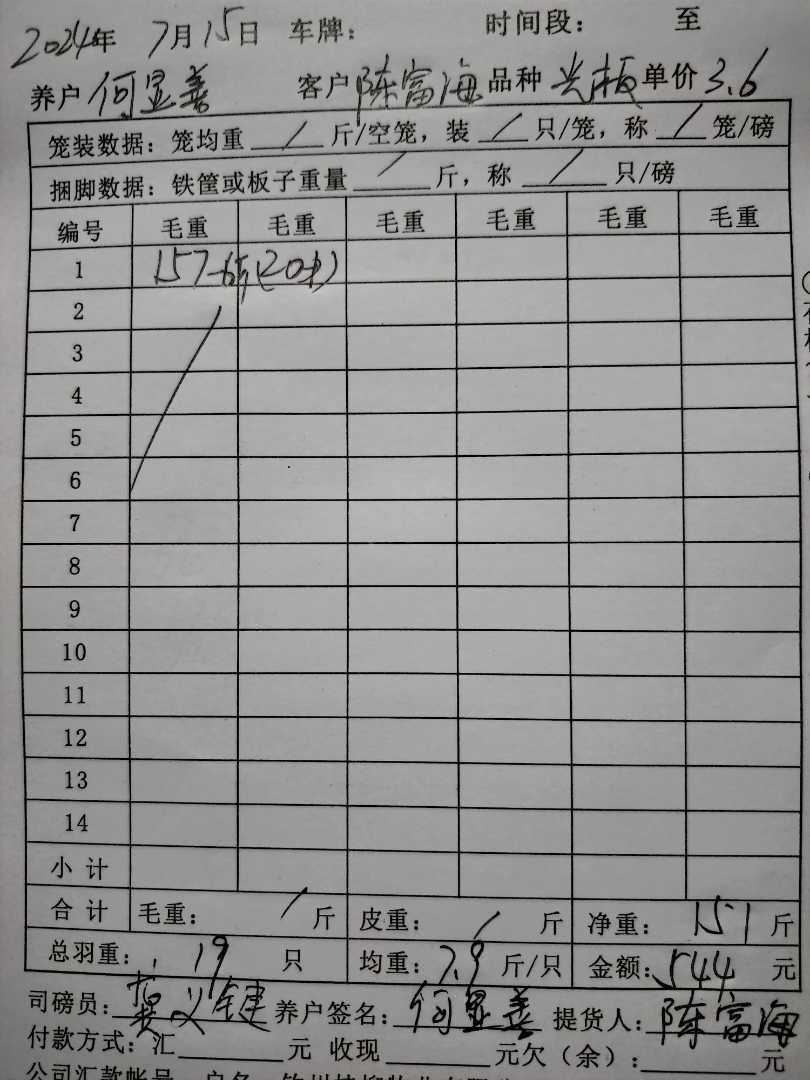 2024年 7月15日 车牌: 时间段: 至
养户 何显善 客户 陈富海 品种 光板 单价 3.6
笼装数据:笼均重 / 斤/空笼,装 / 只/笼,称 / 笼/磅
捆脚数据:铁筐或板子重量 / 斤,称 / 只/磅
编号 毛重 毛重 毛重 毛重 毛重 毛重
1 157-6斤(20只)
2
3
4
5
6
7
8
9
10
11
12
13
14
小计
合计 毛重: / 斤 皮重: / 斤 净重: 151 斤
总羽重: 19 只 均重: 7.9 斤/只 金额: 544 元
司磅员: 义键 养户签名: 何显善 提货人: 陈富海
付款方式:汇 元 收现 元欠(余): 元
公司汇款帐号 户名